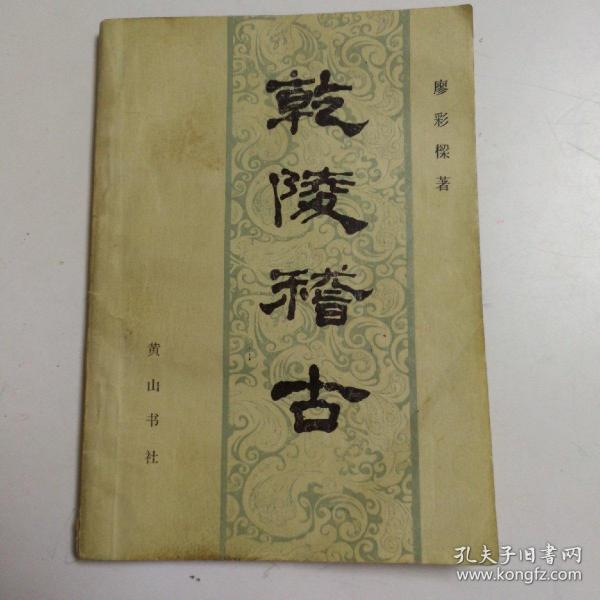 乾陵稽古
廖彩樑著
黄山书社
孔夫子旧书网
www.kongfz.com